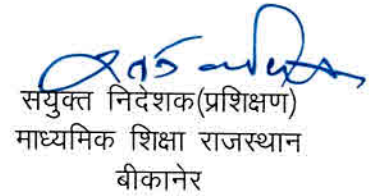 संयुक्त निदेशक(प्रशिक्षण)
माध्यमिक शिक्षा राजस्थान
बीकानेर